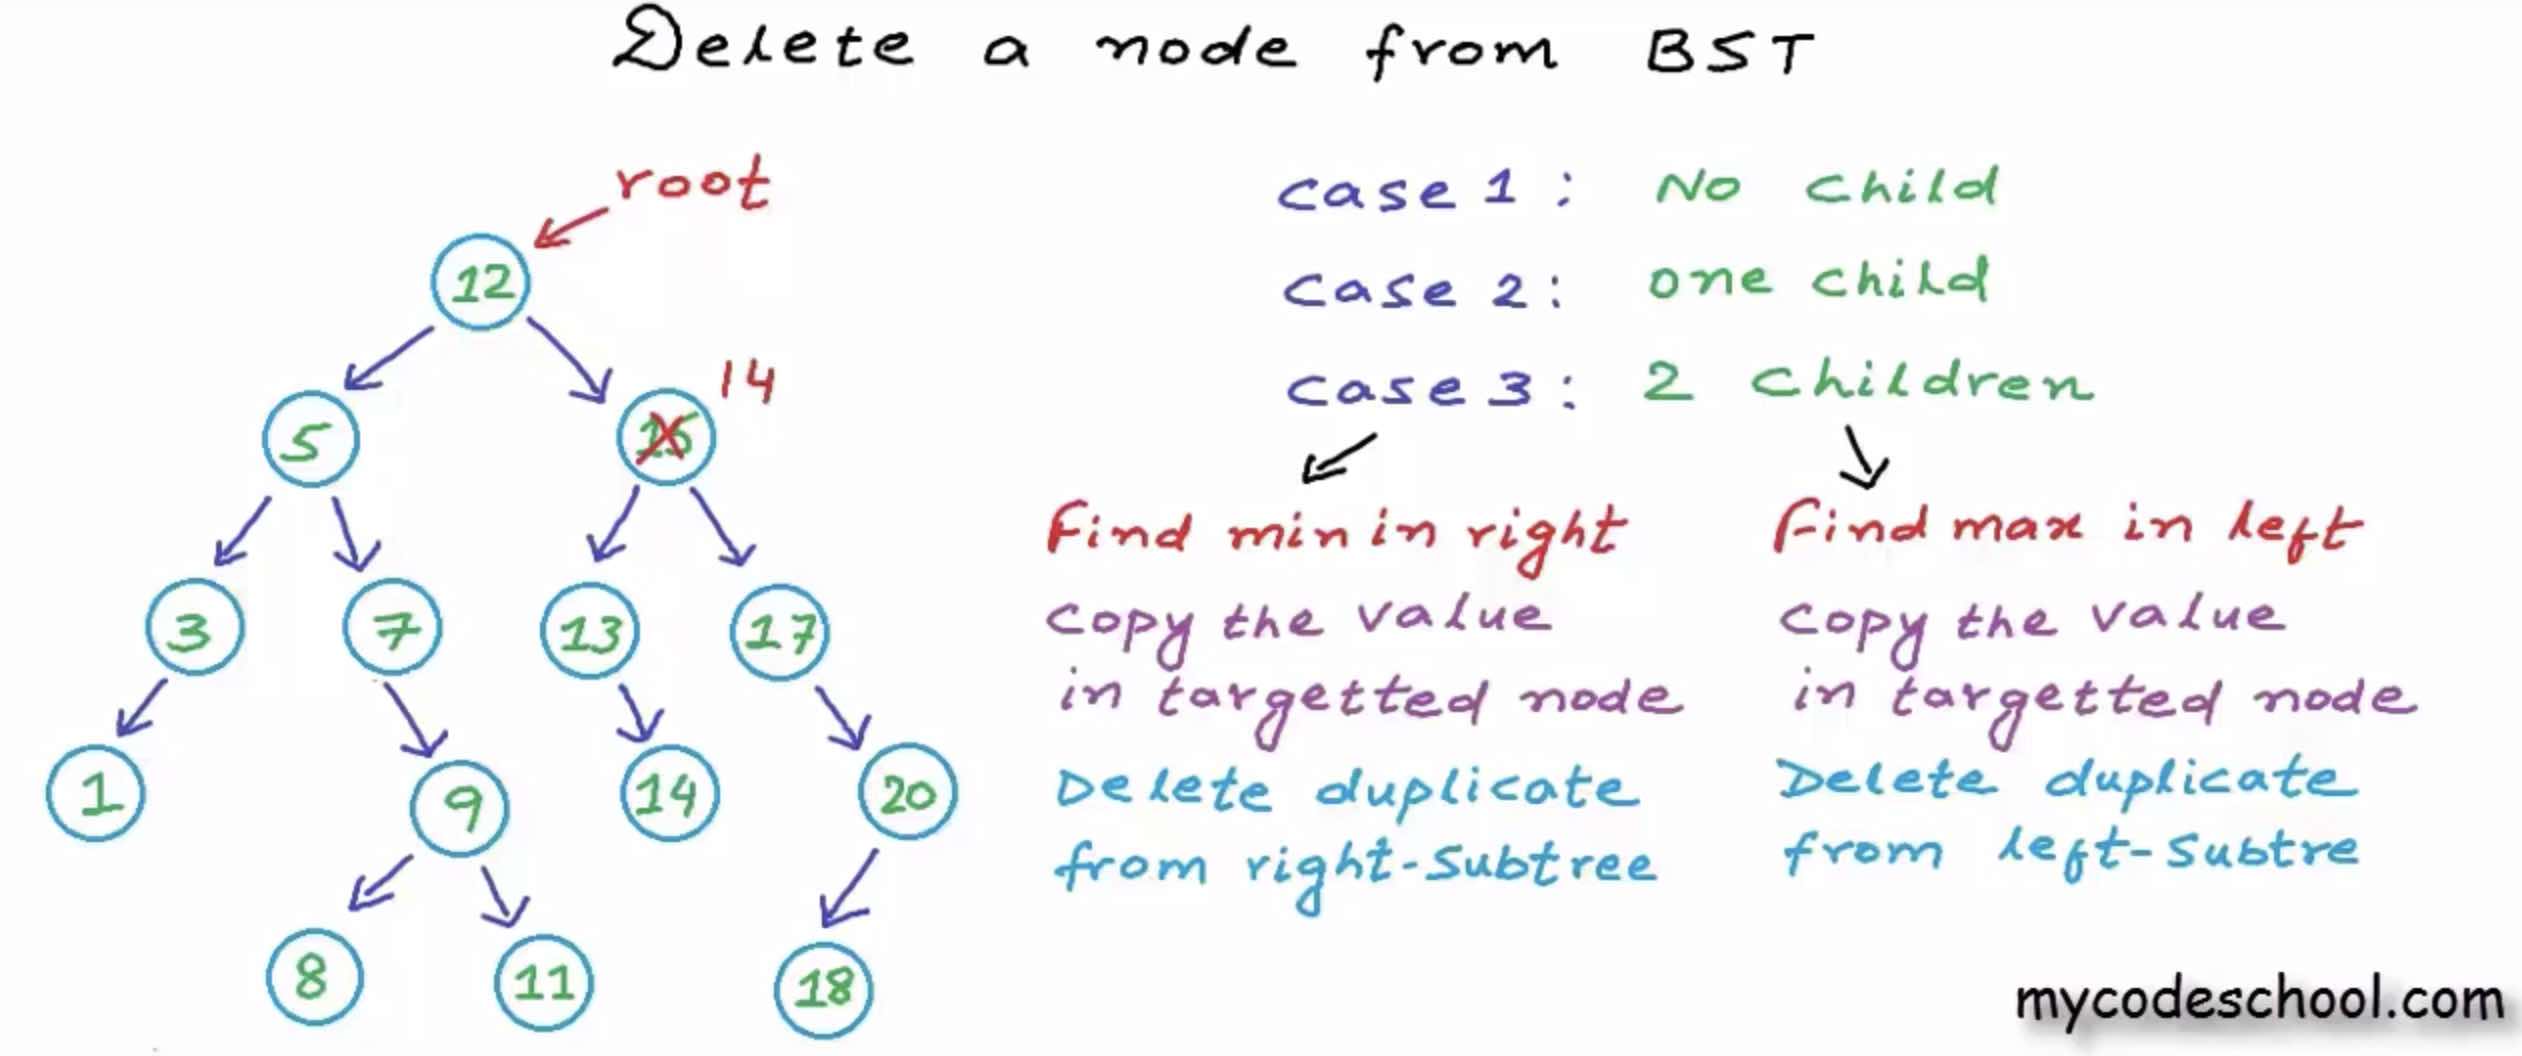 Delete a node from BST
root
case 1 : No child
case 2 : one child
case 3 : 2 children
12
14
5
15
3
7
13
17
1
9
14
20
8
11
18
Find min in right
copy the value
in targetted node
Delete duplicate
from right-subtree
Find max in left
copy the value
in targetted node
Delete duplicate
from left-subtre
mycodeschool.com